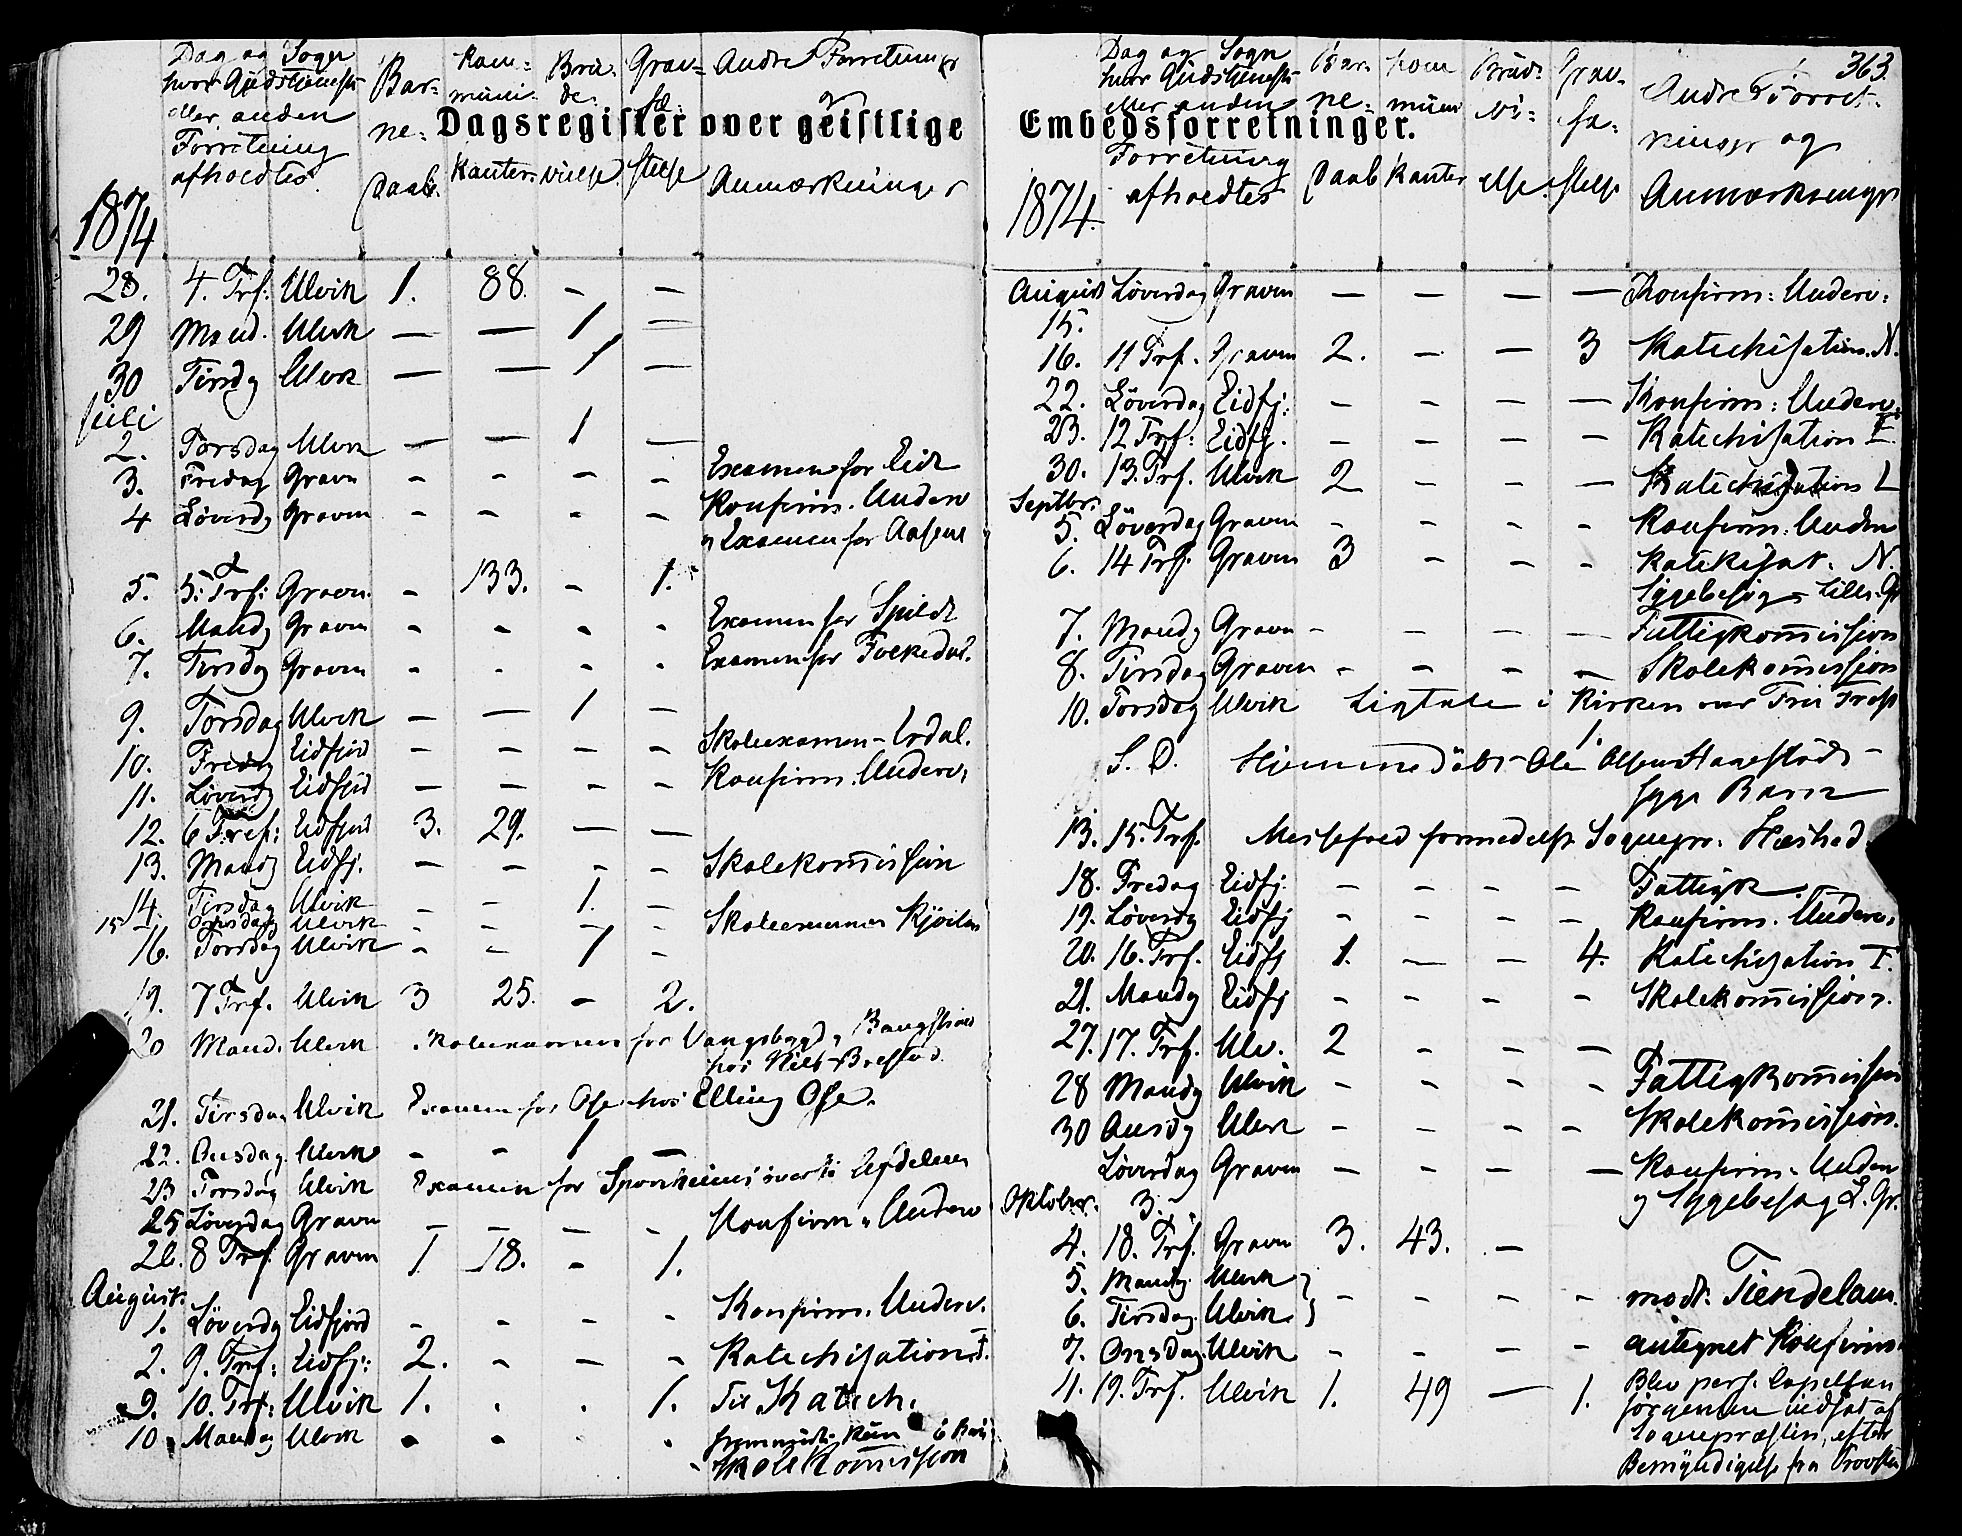 Dagsregister over geistlige
Dag og Sogn hvor Gudstjeneste eller anden Forretning afholdtes.
Barne-Daab.
Kommunikanter.
Brudevielse.
Gravfæstelse
Andre Forretninger og Anmærkninger
1874
28. 4. Trf. Ulvik 1. 88. – –
29 Mand. Ulvik — — 1 —
30 Tirsdg Ulvik — — 1 —
Juli
2. Torsdag Ulvik — — 1 —
3. Fredag Gravn - - - - Examen for Eide
4 Løverdg Graven - - - - Konfirm. Underv
og Examen for Aasene
5. 5. Trf: Graven. - 133. - 1.
6. Mandg Graven - - - - Examen for Spilde
7. Tirsdg Graven - - - - Examen for Folkedal.
9. Torsdag Ulvik — — 1 —
10. Fredag Eidfjord - - - - Skoleexamen - Erdal.
11. Løverdg Eidfjord - - - - Konfirm. Underv.
12. 6 Tref: Eidfjord 3. 29. — —
13. Mandg Eidfj. - - - - Skolekommission
14. Tirsdag Ulvik - - 1. -
15 Onsdag Ulvik - - - - Skoleexamen
16. Torsdag Ulvik - - 1 -
19. 7 Trf. Ulvik 3 25. - 2.
20 Mand. Ulvik Skoleexamen for Vangsbygd
hos Nils
21. Tirsdag Ulvik Examen for Ose hos Elling Ose.
22. Onsdag Ulvik - - 1 —
23 Torsdag Ulvik Examen for
25 Løverdag Gravn - - - - Konfirm. Underv
26. 8 Trf. Graven 1 18. - 1.
August.
1. Løverdg Eidfjord - - - - Konfirm. Underv.
2. 9. Trf: Eidfj: 2. - - - Katechisation I.
9. 10. Trf: Ulvik 1. . . 1. Til Katech.
fremmødte kun 6 Børn
10 Mandag Ulvik - - - - Skolekommission
Embedsforretninger.
363.
Dag og Sogn hvor Gudstjeneste eller anden Forretning afholdtes
Barne-Daab
Kommunikanter
Brudevielse.
Gravfæstelse
Andre Forretninger og Anmærkninger
1874.
August 15. Løverdag Graven — — — — Konfirm: Underv:
16. 11 Trf. Graven 2. — — 3 Katechisation. N.
22. Løverdag Eidfj: - - - — Konfirm: Underv.
23. 12 Trf: Eidfj. - - - - Katechisation I.
30. 13. Trf. Ulvik 2 - - — Katechisation L
Septbr.
5. Løverdag Graven - - - - Konfirm: Underv
6. 14 Trf. Graven 3 - - - Katekisat. N.
Sygebesøg Lille Gr
7. Mandg Gravn - - - — Fattigkommission
8. Tirsdag Graven - - - — Skolekommission
10. Torsdag Ulvik Ligtale i Kirken over
1.
S. D. Hjemmedøbt Ole Olsen
syge Barn
13. 15. Trf. Messefald formedelst Sognepr.
18. Fredag Eidfj. - - - - Fattigk.
19. Løverdg Eidfj - - - - Konfirm. Underv.
20. 16. Trf. Eidfj 1. — — 4. Katechisation I.
21. Mandg Eidfj - - - - Skolekommission.
27. 17. Trf. Ulv. 2 - - —
28 Mandg Ulvik - - - - Fattigkommission
30 Onsdg Ulvik - - - - Skolekommission.
Løverdag Graven - - - — Konfirm. Underv
Oktober. 3. og Sygebesøg L. Gr.
4. 18. Trf. Gravn 3. 43. —
5. Mandg. Ulvik
6. Tirsdag. Ulvik - - - - modt. Tiendelam.
7. Onsdag. Ulvik - - - - antegnet Konfirm.
11. 19. Trf. Ulvik 1. 49 — 1. Blev pers. Capellan
Jørgensen indsat af
Sognepræsten, efter
Bemyndigelse fra Provsten